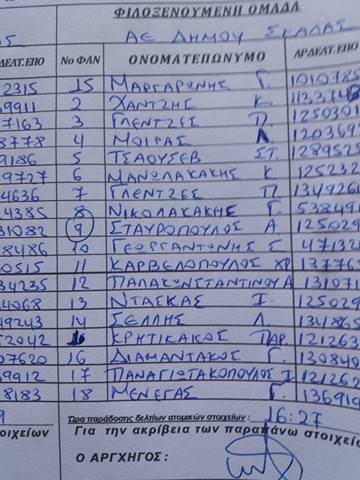 ΦΙΛΟΞΕΝΟΥΜΕΝΗ ΟΜΑΔΑ
ΑΕ ΔΗΜΟΥ ΣΚΑΛΑΣ
ΑΡ.ΔΕΛΤ.ΕΠΟ Νο ΦΑΝ ΟΝΟΜΑΤΕΠΩΝΥΜΟ ΑΡ.ΔΕΛΤ.ΕΠΟ
2315 15 ΜΑΡΓΑΡΩΝΗΣ Γ. 1010785
9911 2 ΧΑΝΤΖΗΣ Κ
7163 3 ΓΛΕΝΤΖΕΣ Π. 1250301
8778 4 ΜΟΙΡΑΣ Λ 120369
9186 5 ΤΣΑΟΥΣΕΒ ΣΤ. 1289525
9727 6 ΜΑΝΩΛΑΚΑΚΗΣ Κ 125232
4636 7 ΓΛΕΝΤΖΕΣ Π. 1349261
4385 8 ΝΙΚΟΛΑΚΑΚΗΣ Γ. 538491
31082 9 ΣΤΑΥΡΟΠΟΥΛΟΣ Α. 125029
8486 10 ΓΕΩΡΓΑΝΤΩΝΗΣ Γ 47132
0515 11 ΚΑΡΒΕΛΟΠΟΥΛΟΣ ΧΡ 13776
34235 12 ΠΑΠΑΚΩΝΣΤΑΝΤΙΝΟΥ Α 131071
4068 13 ΝΤΑΣΚΑΣ Ι. 125029
49243 14 ΣΕΛΛΗΣ Λ. 134865
52042 ΚΡΗΤΙΚΑΚΟΣ ΠΑΡ. 121263
07620 16 ΔΙΑΜΑΝΤΑΚΟΣ Γ. 130840
39912 17 ΠΑΝΑΓΙΩΤΑΚΟΠΟΥΛΟΣ Ι 121267
8183 18 ΜΕΝΕΓΑΣ Γ. 136919
Ώρα παράδοσης δελτίων ατομικών στοιχείων : 16:27
στοιχείων Για την ακρίβεια των παραπάνω στοιχείων
Ο ΑΡΧΗΓΟΣ :